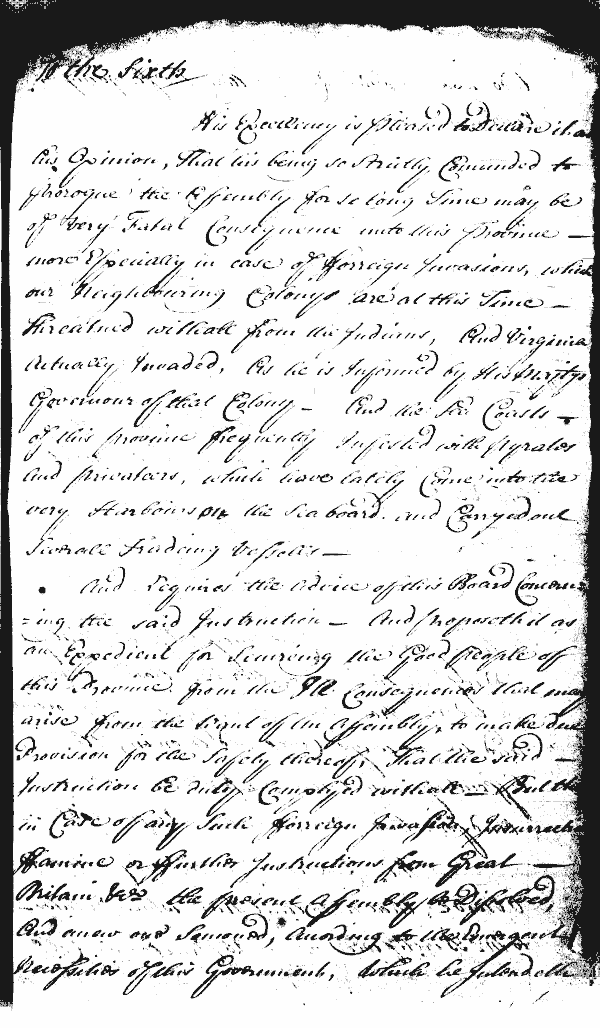 To the Sixth
His Excellency is pleased to Declare it as
his Opinion, That his being so strictly Comanded to
prorogue the Assembly for so long Time may be
of Very Fatal Consequence unto this Province —
more Especially in case of fforreign Invasions, which
our Neighbouring Colonys are at this Time —
threatned withall from the Indians, And Virginia
Actually Invaded, As he is Informed by His Majtys
Governour of that Colony — And the Sea Coasts —
of this province frequently Infested with Pyrates
And privateers, which have lately Come into the
very Harbours on the Sea board and Carryed out
Severall Trading Vessells —
And Requires the Advice of this Board Concern=
=ing the said Instruction — And proposeth it as
an Expedient for Secureing the Good people of
this Province from the Ill Consequences that may
arise from the Want of an Assembly, to make due
Provision for the Safety thereof, That the said —
Instruction be duly Complyed withall — But th
in Case of any Such fforreign Invasion, Insurrect
ffamine or ffurther Instructions from Great —
Britain &ca the present Assembly be Dissolved,
And anew one Sumoned, According to the Emergent
Necessities of this Government, Which he Intendeth